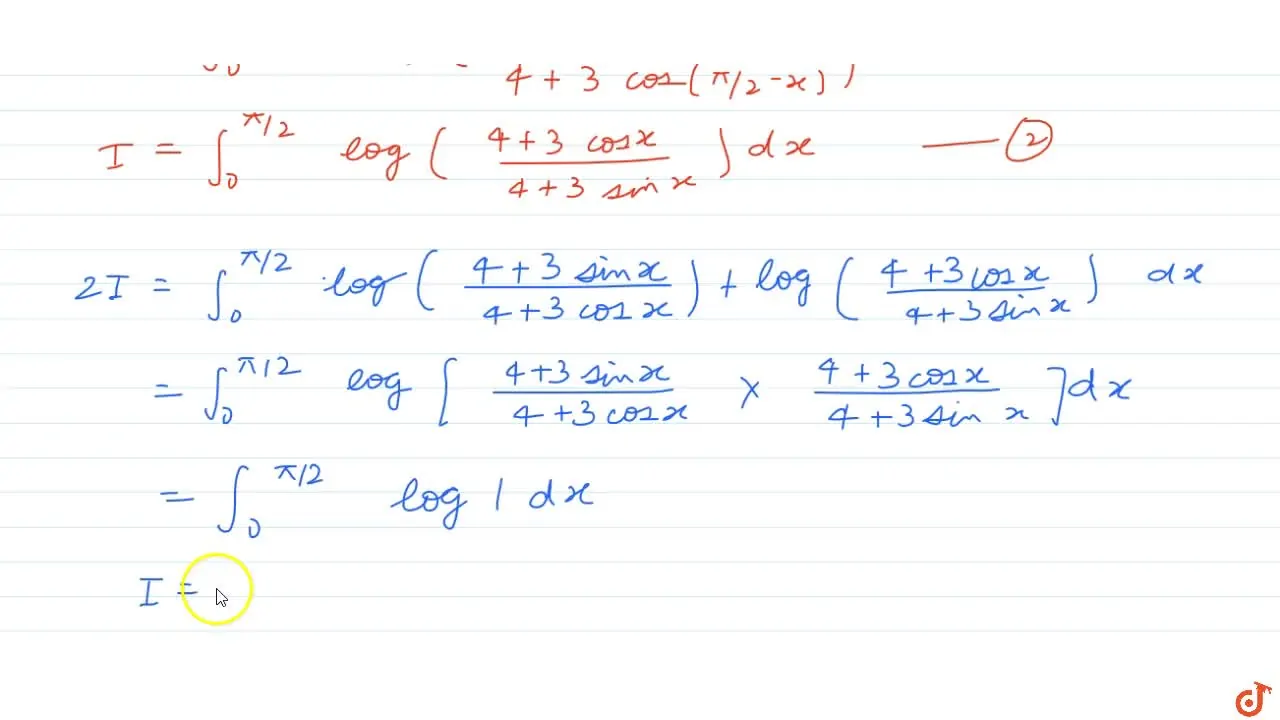 ∫₀ 4 + 3 cos(π/2 - x) )
I = ∫₀^π/2 log ( (4 + 3 cosx)/(4 + 3 sin x) ) dx —— ②
2I = ∫₀^π/2 log ( (4 + 3 sinx)/(4 + 3 cosx) ) + log ( (4 + 3 cosx)/(4 + 3 sinx) ) dx
= ∫₀^π/2 log [ (4 + 3 sinx)/(4 + 3 cosx) × (4 + 3 cosx)/(4 + 3 sin x) ] dx
= ∫₀^π/2 log 1 dx
I =